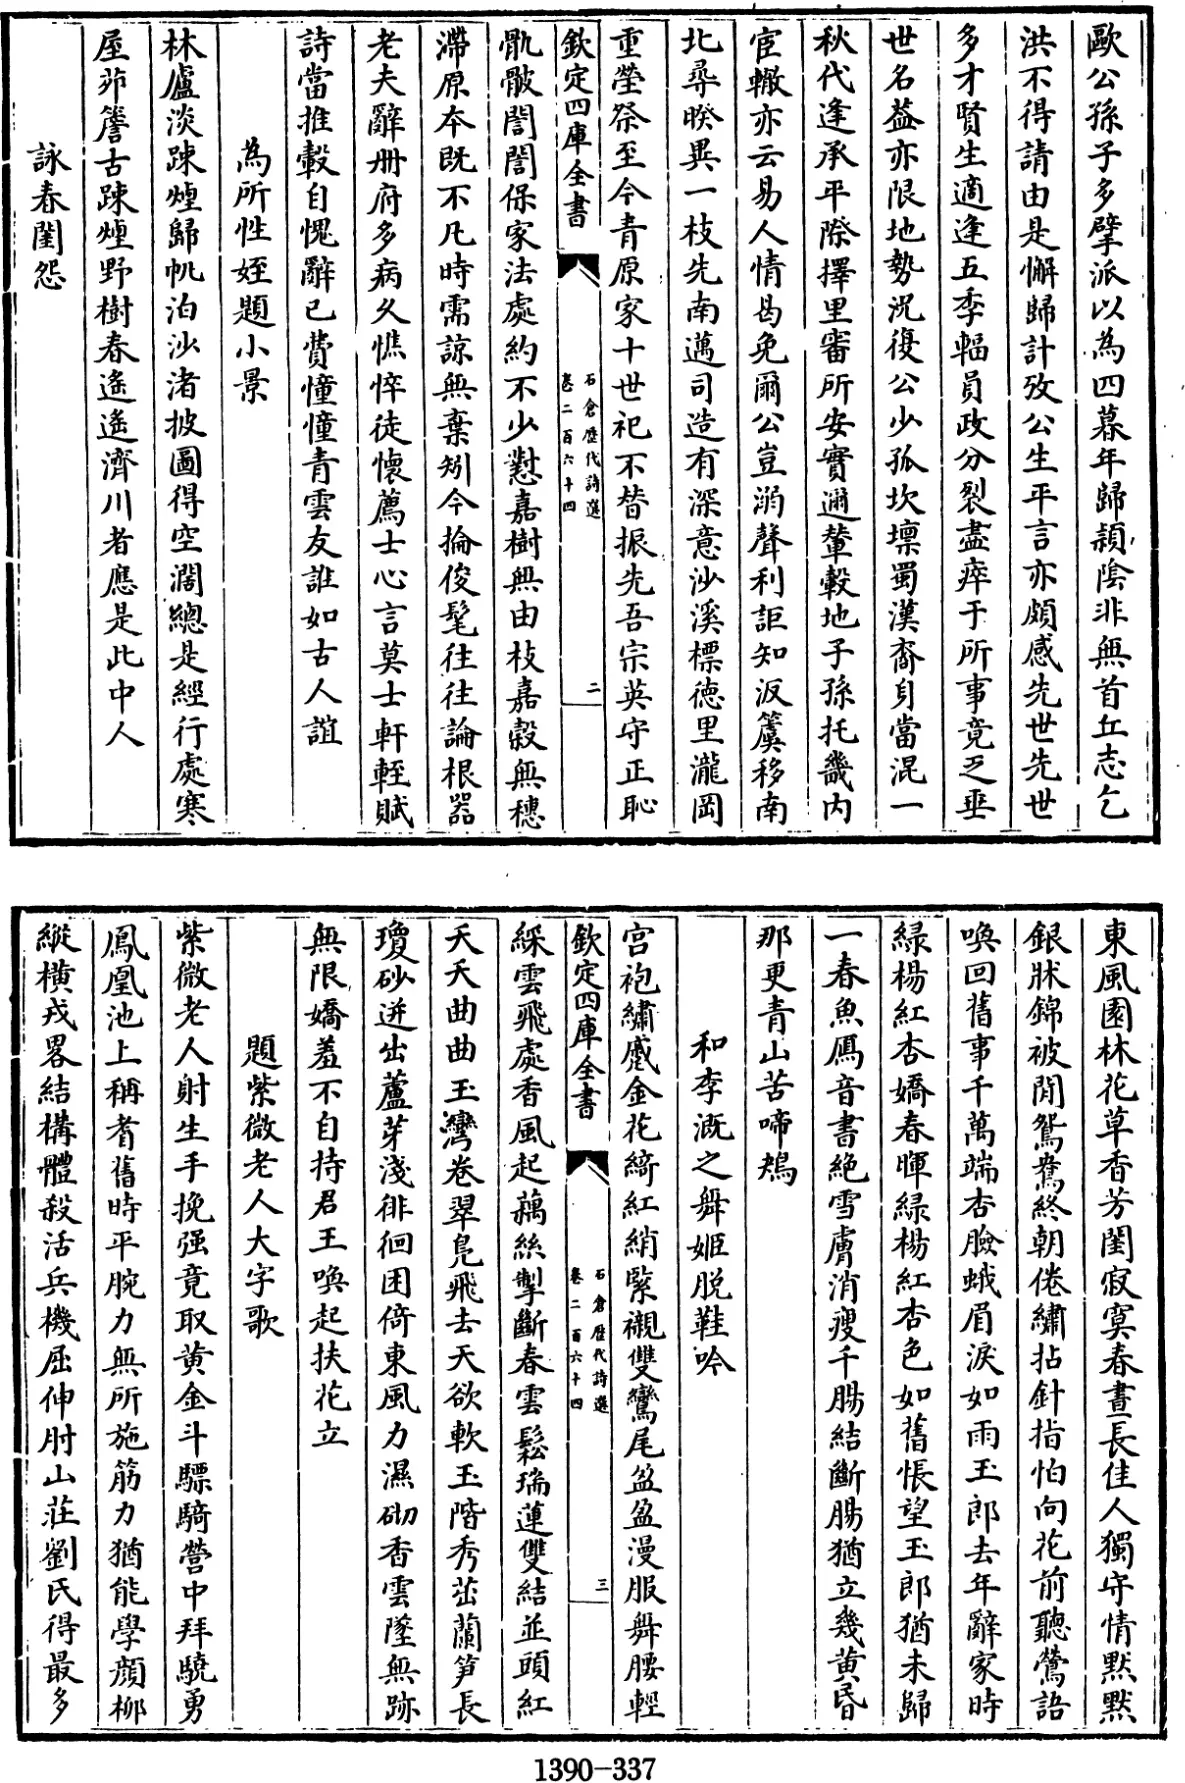 歐公孫子多擘派以為四暮年歸潁陰非無首丘志乞
洪不得請由是懈歸計攷公生平言亦頗感先世先世
多才賢生適逢五季輻員政分裂盡瘁于所事竟乏垂
世名益亦限地勢況復公少孤坎壈蜀漢裔身當混一
秋代逢承平際擇里審所安實邇輦轂地子孫托畿内
宦轍亦云易人情曷免爾公豈溺聲利詎知汳簴移南
北尋暌異一枝先南邁司造有深意沙溪標德里瀧岡
重塋祭至今青原家十世祀不替振先吾宗英守正恥
欽定四庫全書
石倉歷代詩選
卷二百六十四
二
骩骳誾誾保家法處約不少懟嘉樹無由枝嘉穀無穗
滯原本既不凡時需諒無棄矧今掄俊髦往往論根器
老夫辭册府多病久憔悴徒懷薦士心言莫士軒輊賦
詩當推轂自愧辭已費憧憧青雲友誰如古人誼
為所性姪題小景
林廬淡踈煙歸帆泊沙渚披圖得空濶總是經行處寒
屋茆簷古踈煙野樹春遙遙濟川者應是此中人
詠春閨怨
東風園林花草香芳閨寂寞春晝長佳人獨守情默默
銀牀錦被閒鴛鴦終朝倦繡拈針指怕向花前聽鶯語
喚回舊事千萬端杏臉蛾眉淚如雨玉郎去年辭家時
緑楊紅杏嬌春暉緑楊紅杏色如舊悵望玉郎猶未歸
一春魚鴈音書絶雪膚消瘦千腸結斷腸猶立幾黄昏
那更青山苦啼鴂
和李溉之舞姬脱鞋吟
宫袍繡蹙金花綺紅綃緊襯雙鸞尾盆盈漫服舞腰輕
欽定四庫全書
石倉歷代詩選
卷二百六十四
三
綵雲飛處香風起藕絲掣斷春雲鬆瑞蓮雙結並頭紅
夭夭曲曲玉彎卷翠鳬飛去天欲軟玉階秀茁蘭笋長
瓊砂迸出蘆芽淺徘徊困倚東風力濕砌香雲墜無跡
無限嬌羞不自持君王喚起扶花立
題紫微老人大字歌
紫微老人射生手挽强竟取黄金斗驃騎營中拜驍勇
鳳凰池上稱耆舊時平腕力無所施筋力猶能學顔栁
縱横戎畧結構體殺活兵機屈伸肘山莊劉氏得最多
1390-337